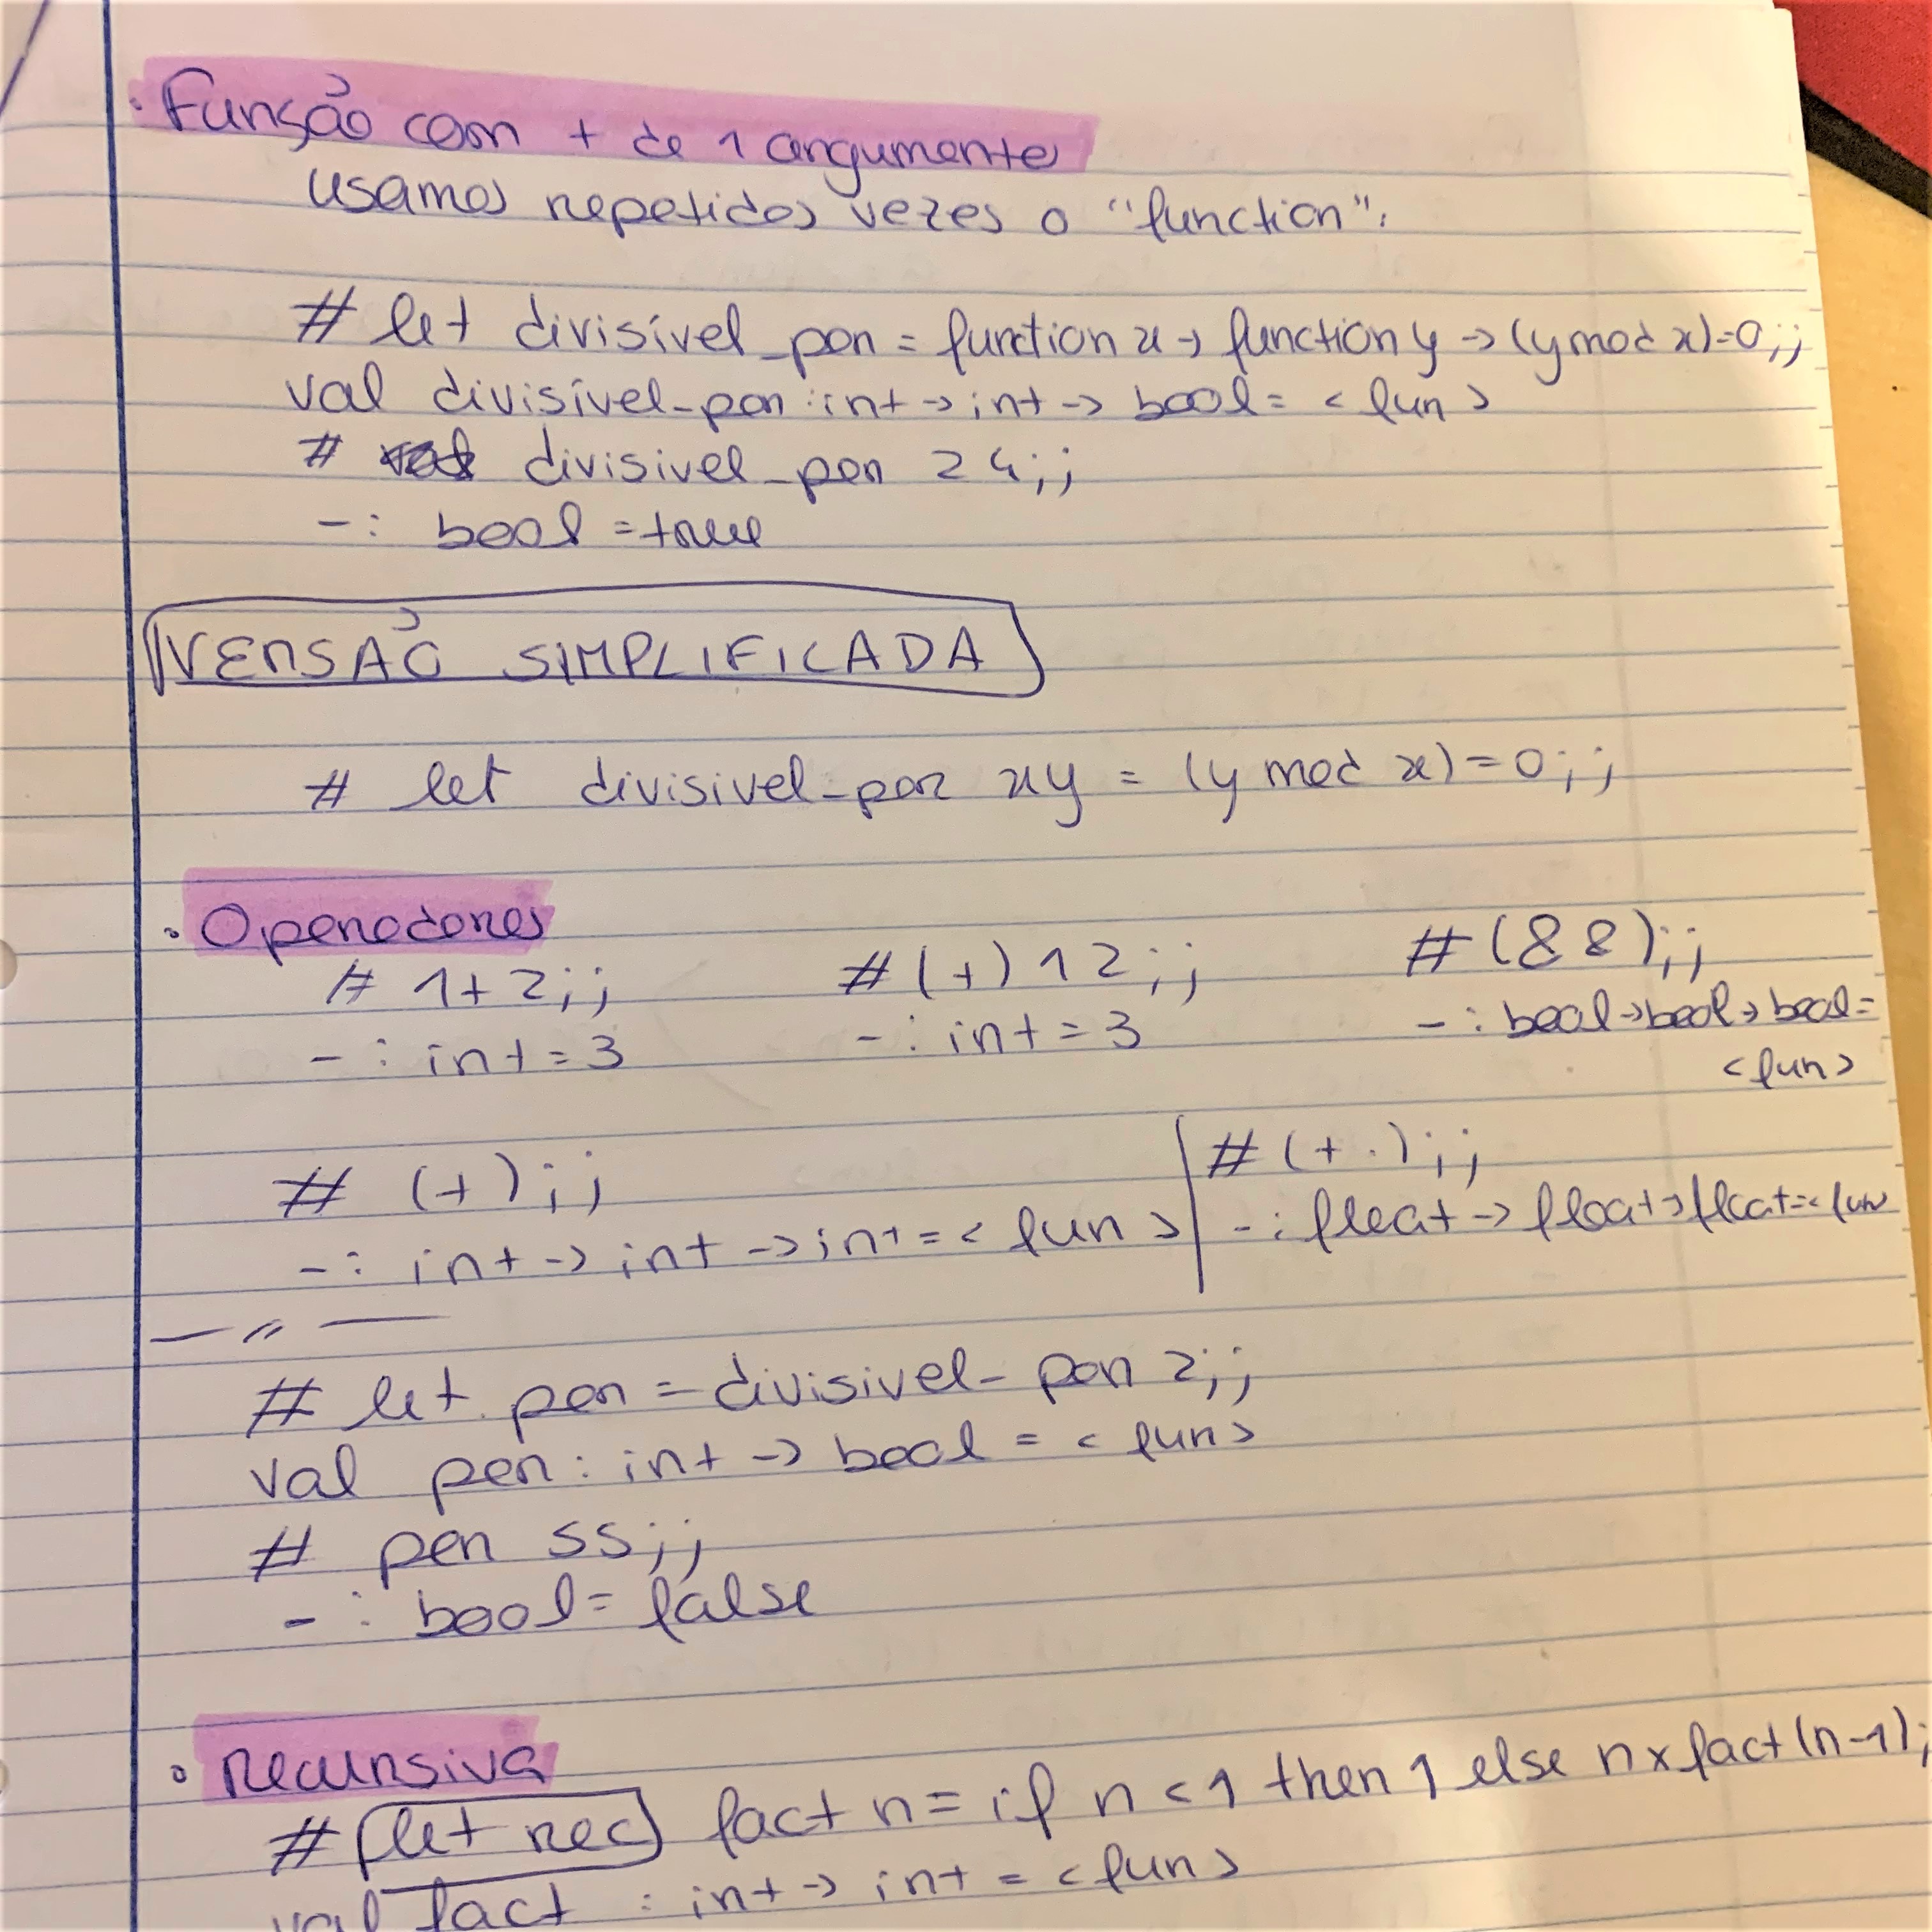 · Função com + de 1 argumento
usamos repetidas vezes o "function".
# let divisível_por = function x → function y → (y mod x)=0;;
val divisível_por : int → int → bool = <fun>
# divisivel_por 2 4;;
- : bool = true
VERSÃO SIMPLIFICADA
# let divisivel_por x y = (y mod x) = 0;;
· Operadores
# 1+2;; # (+) 1 2;; # (&&);;
- : int = 3 - : int = 3 - : bool → bool → bool =
<fun>
# (+);; # (+.);;
- : int → int → int = <fun> - : float → float → float = <fun
— " —
# let per = divisivel_por 2;;
val per : int → bool = <fun>
# per 55;;
- : bool = false
· Recursiva
# let rec fact n = if n < 1 then 1 else n x fact (n-1);
val fact : int → int = <fun>